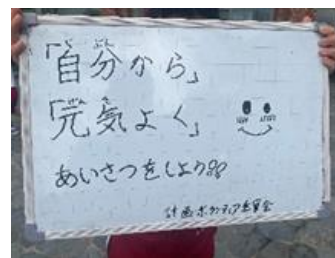 「自分から」
「元気よく」
あいさつをしよう
計画・ボランティア委員会